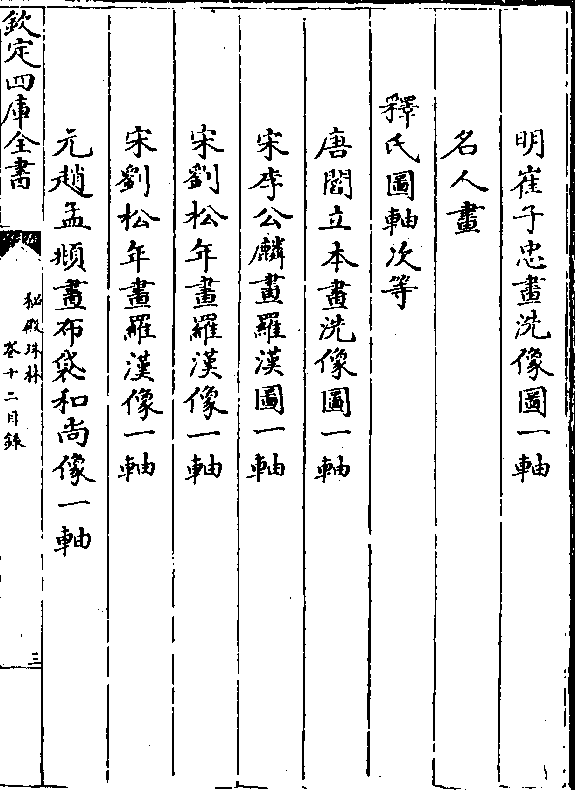 明崔子忠畫洗像圖一軸
名人畫
釋氏圖軸次等
唐閻立本畫洗像圖一軸
宋李公麟畫羅漢圖一軸
宋劉松年畫羅漢像一軸
宋劉松年畫羅漢像一軸
元趙孟頫畫布袋和尚像一軸
欽定四庫全書
秘殿珠林
卷十二目錄
三